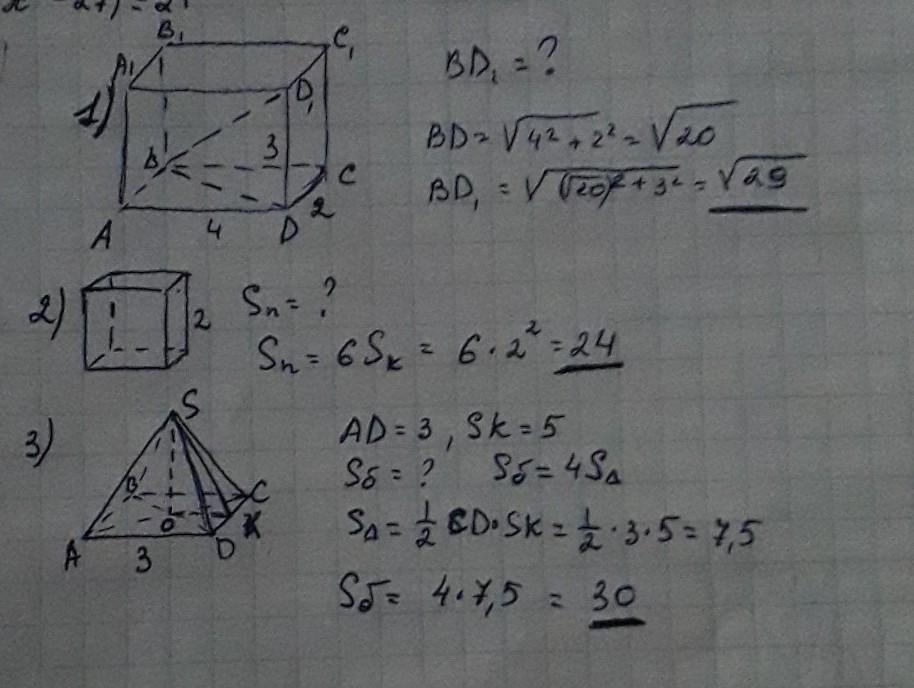 1)
B₁ C₁
A₁ D₁
B 3 C
A 4 D 2
BD₁ = ?
BD = √4² + 2² = √20
BD₁ = √(√20)² + 3² = √29
2)
2
Sп = ?
Sп = 6Sк = 6 · 2² = 24
3)
S
B C
O K
A 3 D
AD = 3, SK = 5
Sб = ? Sб = 4S△
S△ = 1/2 CD · SK = 1/2 · 3 · 5 = 7,5
Sб = 4 · 7,5 = 30